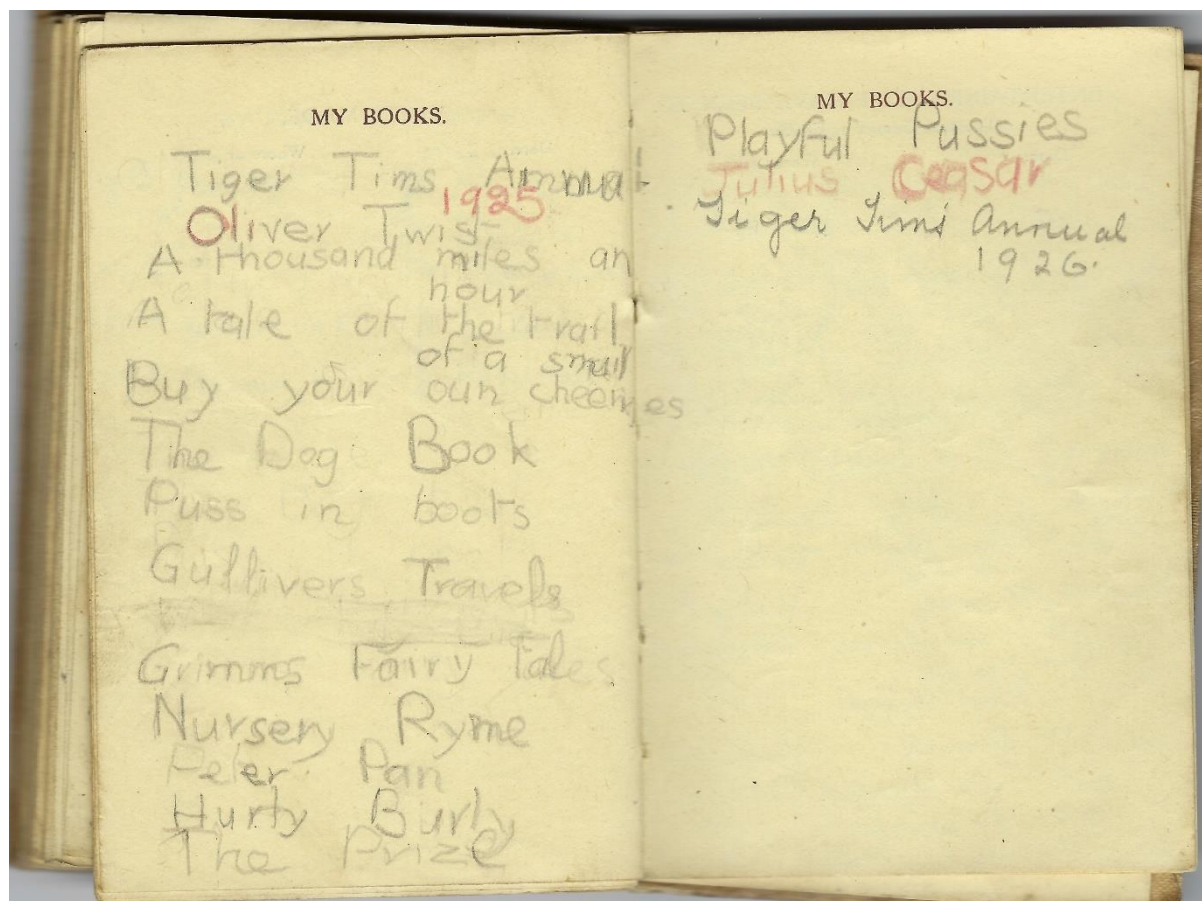 MY BOOKS.
Tiger Tims Annual
1925
Oliver Twist
A thousand miles an
hour
A tale of the trail
of a small
Buy your oun
The Dog Book
Puss in boots
Gullivers Travels
Grimms Fairy Tales
Nursery Ryme
Peter Pan
Hurly Burly
The Prize
MY BOOKS.
Playful Pussies
Julius Ceasar
Tiger Tims' Annual
1926.